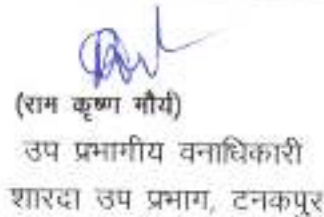 (राम कृष्ण मौर्य)
उप प्रभागीय वनाधिकारी
शारदा उप प्रभाग, टनकपुर